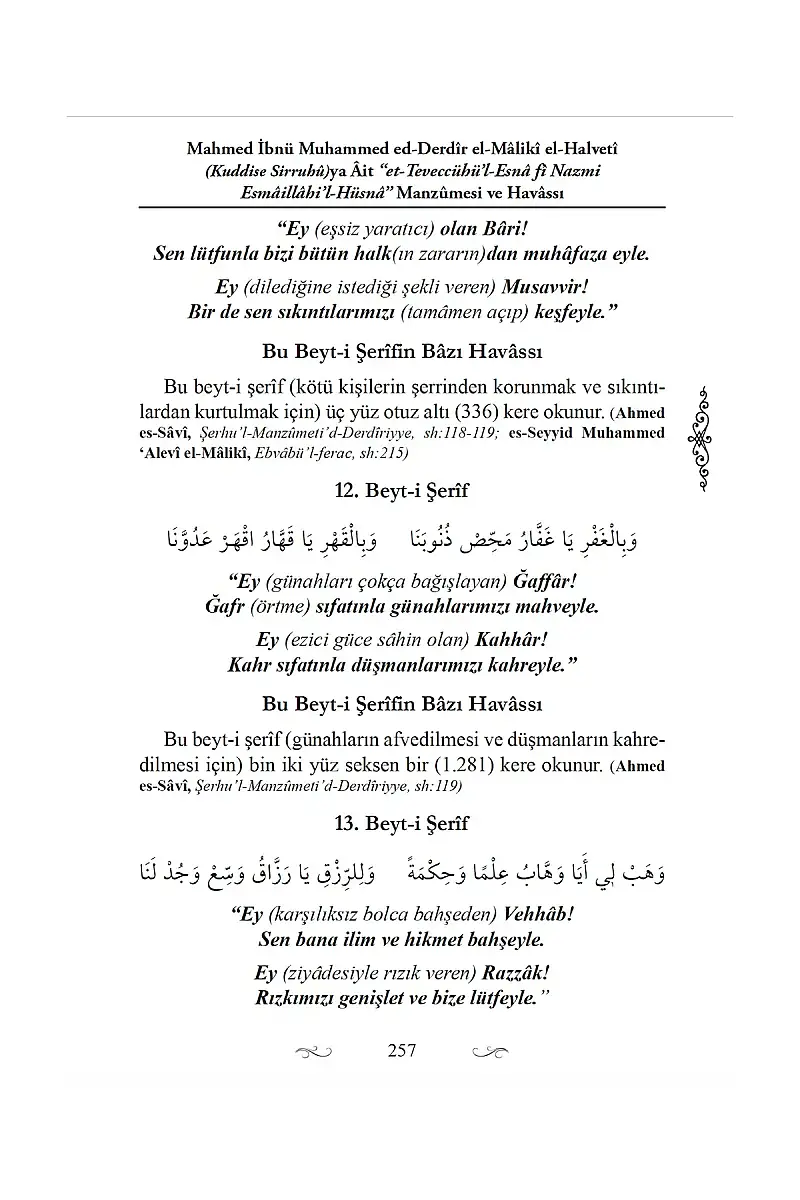 Mahmed İbnü Muhammed ed-Derdîr el-Mâlikî el-Halvetî
(Kuddise Sirruhû)ya Âit “et-Teveccühü’l-Esnâ fî Nazmi
Esmâillâhi’l-Hüsnâ” Manzûmesi ve Havâssı
“Ey (eşsiz yaratıcı) olan Bâri!
Sen lütfunla bizi bütün halk(ın zararın)dan muhâfaza eyle.
Ey (dilediğine istediği şekli veren) Musavvir!
Bir de sen sıkıntılarımızı (tamâmen açıp) keşfeyle.”
Bu Beyt-i Şerîfin Bâzı Havâssı
Bu beyt-i şerîf (kötü kişilerin şerrinden korunmak ve sıkıntı-
lardan kurtulmak için) üç yüz otuz altı (336) kere okunur. (Ahmed
es-Sâvî, Şerhu’l-Manzûmeti’d-Derdîriyye, sh:118-119; es-Seyyid Muhammed
‘Alevî el-Mâlikî, Ebvâbü’l-ferac, sh:215)
12. Beyt-i Şerîf
وَبِالْغَفْرِ يَا غَفَّارُ مَحِّصْ ذُنُوبَنَا وَبِالْقَهْرِ يَا قَهَّارُ اقْهَرْ عَدُوَّنَا
“Ey (günahları çokça bağışlayan) Ğaffâr!
Ğafr (örtme) sıfatınla günahlarımızı mahveyle.
Ey (ezici güce sâhin olan) Kahhâr!
Kahr sıfatınla düşmanlarımızı kahreyle.”
Bu Beyt-i Şerîfin Bâzı Havâssı
Bu beyt-i şerîf (günahların afvedilmesi ve düşmanların kahre-
dilmesi için) bin iki yüz seksen bir (1.281) kere okunur. (Ahmed
es-Sâvî, Şerhu’l-Manzûmeti’d-Derdîriyye, sh:119)
13. Beyt-i Şerîf
وَهَبْ لِي أَيَا وَهَّابُ عِلْمًا وَحِكْمَةً وَلِلرِّزْقِ يَا رَزَّاقُ وَسِّعْ وَجُدْ لَنَا
“Ey (karşılıksız bolca bahşeden) Vehhâb!
Sen bana ilim ve hikmet bahşeyle.
Ey (ziyâdesiyle rızık veren) Razzâk!
Rızkımızı genişlet ve bize lütfeyle.”
257